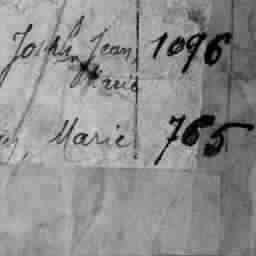 Joseph Jean, 1096
Marie
Marie 765